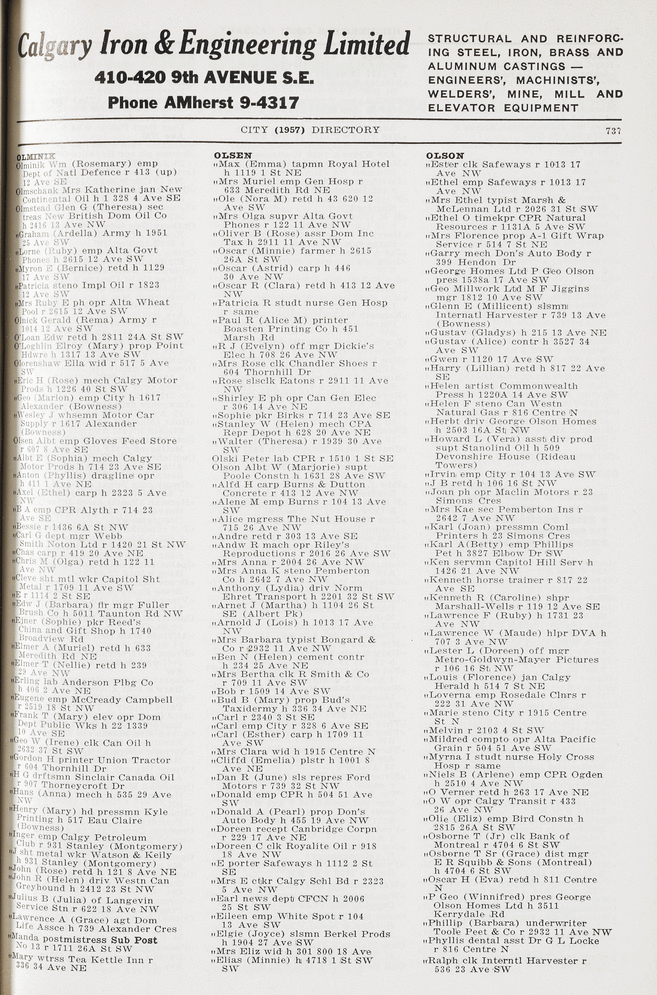 Calgary Iron & Engineering Limited
410-420 9th AVENUE S.E.
Phone AMherst 9-4317
STRUCTURAL AND REINFORC-
ING STEEL, IRON, BRASS AND
ALUMINUM CASTINGS —
ENGINEERS', MACHINISTS',
WELDERS', MINE, MILL AND
ELEVATOR EQUIPMENT
CITY (1957) DIRECTORY
737
OLMINIK
Olminik Wm (Rosemary) emp
Dept of Natl Defence r 413 (up)
12 Ave SE
Olmschank Mrs Katherine jan New
Continental Oil h 1 328 4 Ave SE
Olmstead Glen G (Theresa) sec
treas New British Dom Oil Co
h 2416 13 Ave NW
"Graham (Ardella) Army h 1951
25 Ave SW
"Lorne (Ruby) emp Alta Govt
Phones h 2615 12 Ave SW
"Myron E (Bernice) retd h 1129
17 Ave SW
"Patricia steno Impl Oil r 1823
12 Ave SW
"Mrs Ruby E ph opr Alta Wheat
Pool r 2615 12 Ave SW
Olnick Gerald (Rema) Army r
1014 12 Ave SW
O'Loan Edw retd h 2811 24A St SW
O'Loghlin Elroy (Mary) prop Point
Hdwre h 1317 13 Ave SW
Olorenshaw Ella wid r 517 5 Ave
SW
"Eric H (Rose) mech Calgy Motor
Prods h 1226 40 St SW
"Geo (Marion) emp City h 1617
Alexander (Bowness)
"Wesley J whsemn Motor Car
Supply r 1617 Alexander
(Bowness)
Olsen Albt emp Gloves Feed Store
r 407 8 Ave SE
"Albt E (Sophia) mech Calgy
Motor Prods h 714 23 Ave SE
"Anton (Phyllis) dragline opr
h 411 1 Ave NE
"Axel (Ethel) carp h 2323 5 Ave
NW
"B A emp CPR Alyth r 714 23
Ave SE
"Bessie r 1436 6A St NW
"Carl G dept mgr Webb
Smith Noton Ltd r 1420 21 St NW
"Chas carp r 419 20 Ave NE
"Chris M (Olga) retd h 122 11
Ave NW
"Cleve sht mtl wkr Capitol Sht
Metal r 1709 11 Ave SW
"E r 1114 2 St SE
"Edw J (Barbara) flr mgr Fuller
Brush Co h 5011 Taunton Rd NW
"Ejner (Sophie) pkr Reed's
China and Gift Shop h 1740
Broadview Rd
"Elmer A (Muriel) retd h 633
Meredith Rd NE
"Elmer T (Nellie) retd h 239
29 Ave NW
"Erling lab Anderson Plbg Co
h 406 2 Ave NE
"Eugene emp McCready Campbell
r 2519 18 St NW
"Frank T (Mary) elev opr Dom
Dept Public Wks h 22 1339
10 Ave SE
"Geo W (Irene) clk Can Oil h
2632 37 St SW
"Gordon H printer Union Tractor
r 604 Thornhill Dr
"H G drftsmn Sinclair Canada Oil
r 907 Thorneycroft Dr
"Hans (Anna) mech h 535 29 Ave
NW
"Henry (Mary) hd pressmn Kyle
Printing h 517 Eau Claire
(Bowness)
"Inger emp Calgary Petroleum
Club r 931 Stanley (Montgomery)
"J sht metal wkr Watson & Keily
h 931 Stanley (Montgomery)
"John (Rose) retd h 121 8 Ave NE
"John R (Helen) driv Westn Can
Greyhound h 2412 23 St NW
"Julius B (Julia) of Langevin
Service Stn r 622 18 Ave NW
"Lawrence A (Grace) agt Dom
Life Assce h 739 Alexander Cres
"Manda postmistress Sub Post
No 13 r 1711 26A St SW
"Mary wtrss Tea Kettle Inn r
336 34 Ave NE
OLSEN
"Max (Emma) tapmn Royal Hotel
h 1119 1 St NE
"Mrs Muriel emp Gen Hosp r
633 Meredith Rd NE
"Ole (Nora M) retd h 43 620 12
Ave SW
"Mrs Olga supvr Alta Govt
Phones r 122 11 Ave NW
"Oliver B (Rose) assr Dom Inc
Tax h 2911 11 Ave NW
"Oscar (Minnie) farmer h 2615
26A St SW
"Oscar (Astrid) carp h 446
30 Ave NW
"Oscar R (Clara) retd h 413 12 Ave
NW
"Patricia R studt nurse Gen Hosp
r same
"Paul R (Alice M) printer
Boasten Printing Co h 451
Marsh Rd
"R J (Evelyn) off mgr Dickie's
Elec h 708 26 Ave NW
"Mrs Rose clk Chandler Shoes r
604 Thornhill Dr
"Rose slsclk Eatons r 2911 11 Ave
NW
"Shirley E ph opr Can Gen Elec
r 306 14 Ave NE
"Sophie pkr Birks r 714 23 Ave SE
"Stanley W (Helen) mech CPA
Repr Depot h 628 20 Ave NE
"Walter (Theresa) r 1939 30 Ave
SW
Olski Peter lab CPR r 1510 1 St SE
Olson Albt W (Marjorie) supt
Poole Constn h 1631 28 Ave SW
"Alfd H carp Burns & Dutton
Concrete r 413 12 Ave NW
"Alene M emp Burns r 104 13 Ave
SW
"Alice mgress The Nut House r
715 26 Ave NW
"Andre retd r 303 13 Ave SE
"Andw R mach opr Riley's
Reproductions r 2016 26 Ave SW
"Mrs Anna r 2004 26 Ave NW
"Mrs Anna K steno Pemberton
Co h 2642 7 Ave NW
"Anthony (Lydia) driv Norm
Ehret Transport h 2201 32 St SW
"Arnet J (Martha) h 1104 26 St
SE (Albert Pk)
"Arnold J (Lois) h 1013 17 Ave
NW
"Mrs Barbara typist Bongard &
Co r 2932 11 Ave NW
"Ben N (Helen) cement contr
h 234 25 Ave NE
"Mrs Bertha clk R Smith & Co
r 709 11 Ave SW
"Bob r 1509 14 Ave SW
"Bud B (Mary) prop Bud's
Taxidermy h 336 34 Ave NE
"Carl r 2340 3 St SE
"Carl emp City r 328 6 Ave SE
"Carl (Esther) carp h 1709 11
Ave SW
"Mrs Clara wid h 1915 Centre N
"Cliffd (Emelia) plstr h 1001 8
Ave NE
"Dan R (June) sls repres Ford
Motors r 739 32 St NW
"Donald emp CPR h 504 51 Ave
SW
"Donald A (Pearl) prop Don's
Auto Body h 455 19 Ave NW
"Doreen recept Canbridge Corpn
r 229 17 Ave NE
"Doreen C clk Royalite Oil r 918
18 Ave NW
"E porter Safeways h 1112 2 St
SE
"Mrs E ctkr Calgy Schl Bd r 2323
5 Ave NW
"Earl news dept CFCN h 2006
25 St SW
"Eileen emp White Spot r 104
13 Ave SW
"Elgie (Joyce) slsmn Berkel Prods
h 1904 27 Ave SW
"Mrs Eliz wid h 301 800 18 Ave
"Elias (Minnie) h 4718 1 St SW
SW
OLSON
"Ester clk Safeways r 1013 17
Ave NW
"Ethel emp Safeways r 1013 17
Ave NW
"Mrs Ethel typist Marsh &
McLennan Ltd r 2026 31 St SW
"Ethel O timekpr CPR Natural
Resources r 1131A 5 Ave SW
"Mrs Florence prop A-1 Gift Wrap
Service r 514 7 St NE
"Garry mech Don's Auto Body r
399 Hendon Dr
"George Homes Ltd P Geo Olson
pres 1538a 17 Ave SW
"Geo Millwork Ltd M F Jiggins
mgr 1812 10 Ave SW
"Glenn E (Millicent) slsmn
Internatl Harvester r 739 13 Ave
(Bowness)
"Gustav (Gladys) h 215 13 Ave NE
"Gustav (Alice) contr h 3527 34
Ave SW
"Gwen r 1120 17 Ave SW
"Harry (Lillian) retd h 817 22 Ave
SE
"Helen artist Commonwealth
Press h 1220A 14 Ave SW
"Helen F steno Can Westn
Natural Gas r 816 Centre N
"Herbt driv George Olson Homes
h 2503 16A St NW
"Howard L (Vera) asst div prod
supt Stanolind Oil h 509
Devonshire House (Rideau
Towers)
"Irvin emp City r 104 13 Ave SW
"J B retd h 106 16 St NW
"Joan ph opr Maclin Motors r 23
Simons Cres
"Mrs Kae sec Pemberton Ins r
2642 7 Ave NW
"Karl (Joan) pressmn Coml
Printers h 23 Simons Cres
"Karl A (Betty) emp Phillips
Pet h 3827 Elbow Dr SW
"Ken servmn Capitol Hill Serv h
1426 21 Ave NW
"Kenneth horse trainer r 817 22
Ave SE
"Kenneth R (Caroline) shpr
Marshall-Wells r 119 12 Ave SE
"Lawrence F (Ruby) h 1731 23
Ave NW
"Lawrence W (Maude) hlpr DVA h
707 3 Ave NW
"Lester L (Doreen) off mgr
Metro-Goldwyn-Mayer Pictures
r 106 16 St NW
"Louis (Florence) jan Calgy
Herald h 514 7 St NE
"Loverna emp Rosedale Clnrs r
222 31 Ave NW
"Marie steno City r 1915 Centre
St N
"Melvin r 2103 4 St SW
"Mildred compto opr Alta Pacific
Grain r 504 51 Ave SW
"Myrna I studt nurse Holy Cross
Hosp r same
"Niels B (Arlene) emp CPR Ogden
h 2510 4 Ave NW
"O Verner retd h 263 17 Ave NE
"O W opr Calgy Transit r 433
26 Ave NW
"Olie (Eliz) emp Bird Constn h
2815 26A St SW
"Osborne T (Jr) clk Bank of
Montreal r 4704 6 St SW
"Osborne T Sr (Grace) dist mgr
E R Squibb & Sons (Montreal)
h 4704 6 St SW
"Oscar H (Eva) retd h 811 Centre
N
"P Geo (Winnifred) pres George
Olson Homes Ltd h 3511
Kerrydale Rd
"Phillip (Barbara) underwriter
Toole Peet & Co r 2932 11 Ave NW
"Phyllis dental asst Dr G L Locke
r 816 Centre N
"Ralph clk Interntl Harvester r
536 23 Ave SW